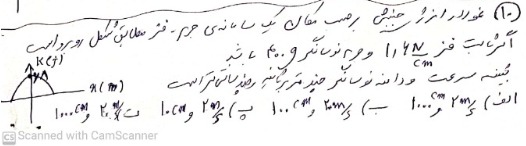 ۱۰) نمودار انرژی جنبشی برحسب مکان یک سامانه‌ی جرم - فنر مطابق شکل روبرو است
اگر ثابت فنر ۱٫۶ N/cm و جرم نوسانگر ۴۰۰g باشد
بیشینه سرعت و دامنه نوسانگر چند متر بر ثانیه و چند سانتی‌متر است
K(J)
x(m)
الف) ۲ m/s و ۱۰۰ cm ب) ۲۰ m/s و ۱۰۰ cm پ) ۲ m/s و ۱۰ cm ت) ۲۰ m/s و ۱۰۰ cm
CS Scanned with CamScanner